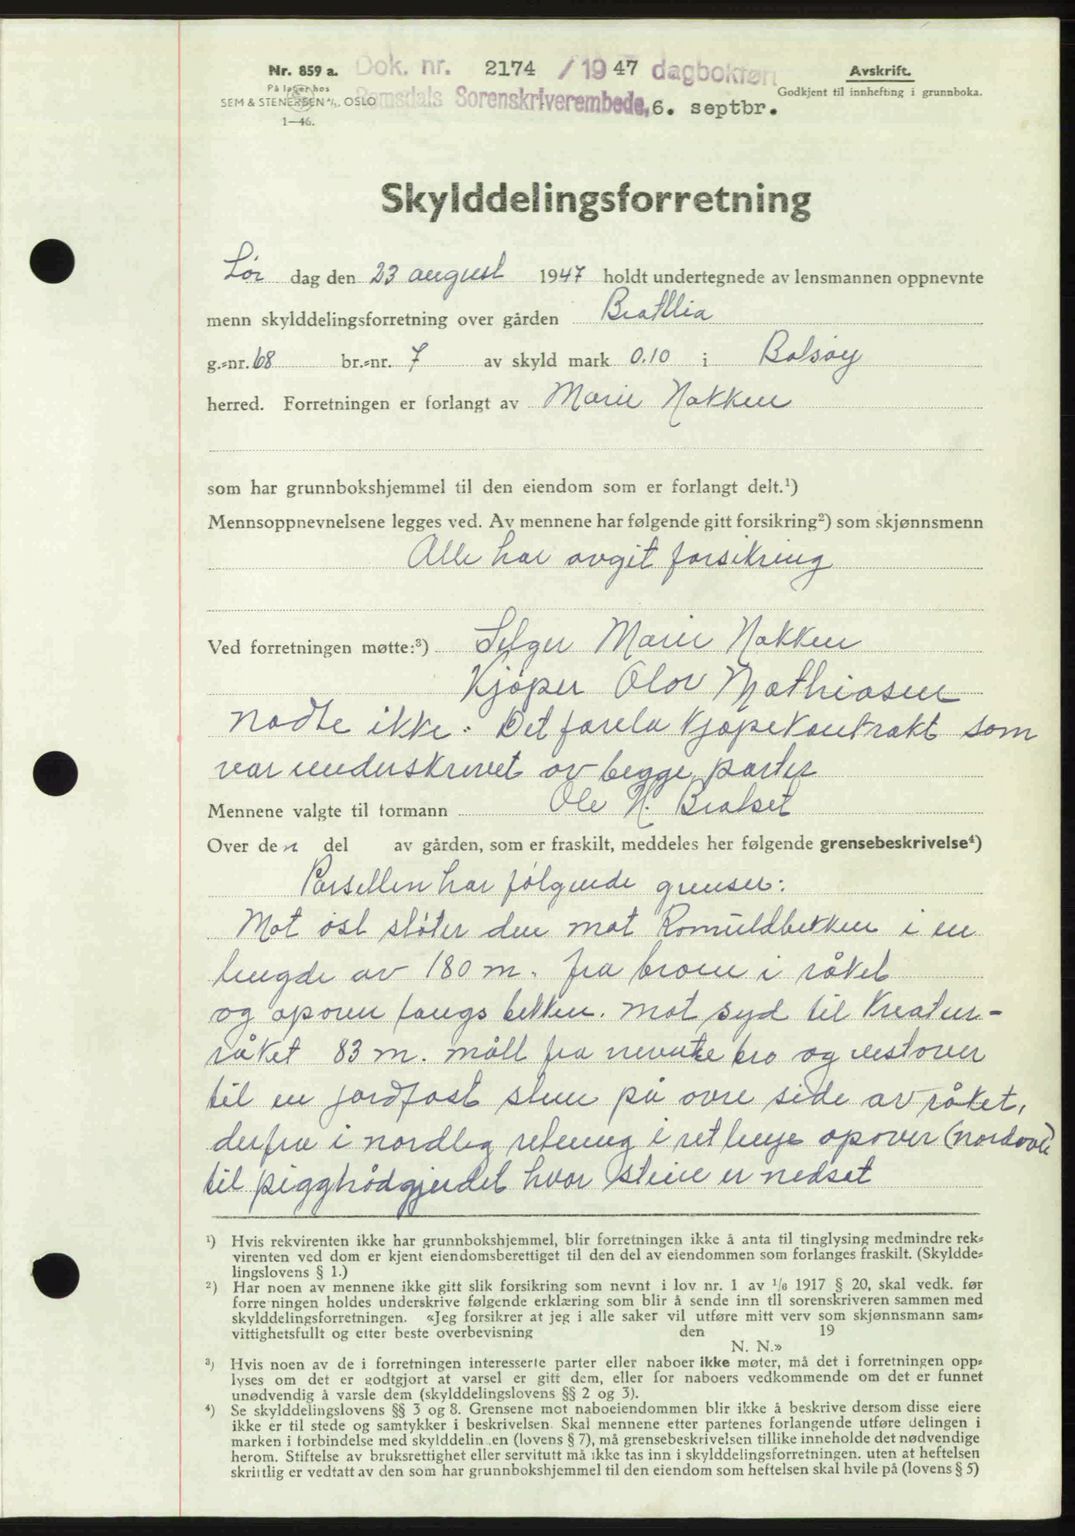 Nr. 859 a.
På lager hos
SEM & STENERSEN A/S. OSLO
1—46.
Dok. nr. 2174 / 1947 dagbokført
Romsdals Sorenskriverembede, 6. septbr.
Avskrift.
Godkjent til innhefting i grunnboka.
Skylddelingsforretning
Lør dag den 23 august 1947 holdt undertegnede av lensmannen oppnevnte
menn skylddelingsforretning over gården Bratllia
g.=nr. 68 br.=nr. 7 av skyld mark 0.10 i Bolsøy
herred. Forretningen er forlangt av Marie Nakken
som har grunnbokshjemmel til den eiendom som er forlangt delt.¹)
Mennsoppnevnelsene legges ved. Av mennene har følgende gitt forsikring²) som skjønnsmenn
Alle har avgit forsikring
Ved forretningen møtte:³) Selger Marie Nakken
Kjøper Olav Mathiasen
møtte ikke. Det forela kjøpekontrakt som
var underskrevet av begge parter
Mennene valgte til formann Ole N. Brakset
Over den del av gården, som er fraskilt, meddeles her følgende grensebeskrivelse⁴)
Parsellen har følgende grenser:
Mot øst støter den mot Romuldbekken i en
lengde av 180 m. fra broen i råket
og opover langs bekken. mot syd til Kreatur-
råket 83 m. målt fra nevnte bro og vestover
til en jordfast sten på øvre side av råket,
derfra i nordleg retning i ret linje opover (nordover)
til piggtrådgjerdet hvor stein er nedsat
¹) Hvis rekvirenten ikke har grunnbokshjemmel, blir forretningen ikke å anta til tinglysing medmindre rek=
virenten ved dom er kjent eiendomsberettiget til den del av eiendommen som forlanges fraskilt. (Skyldde=
lingslovens § 1.)
²) Har noen av mennene ikke gitt slik forsikring som nevnt i lov nr. 1 av 1/6 1917 § 20, skal vedk. før
forretningen holdes underskrive følgende erklæring som blir å sende inn til sorenskriveren sammen med
skylddelingsforretningen. «Jeg forsikrer at jeg i alle saker vil utføre mitt verv som skjønnsmann sam=
vittighetsfullt og etter beste overbevisning den 19
N. N.»
³) Hvis noen av de i forretningen interesserte parter eller naboer ikke møter, må det i forretningen opp=
lyses om det er godtgjort at varsel er gitt dem, eller for naboers vedkommende om det er funnet
unødvendig å varsle dem (skylddelingslovens §§ 2 og 3).
⁴) Se skylddelingslovens §§ 3 og 8. Grensene mot naboeiendommen blir ikke å beskrive dersom disse eiere
ikke er til stede og samtykker i beskrivelsen. Skal mennene etter partenes forlangende utføre delingen i
marken i forbindelse med skylddelin en (lovens § 7), må grensebeskrivelsen tillike inneholde det nødvendige
herom. Stiftelse av bruksrettighet eller servitutt må ikke tas inn i skylddelingsforretningen. uten at heftelsen
skriftlig er vedtatt av den som har grunnbokshjemmel til den eiendom som heftelsen skal hvile på (lovens § 5)